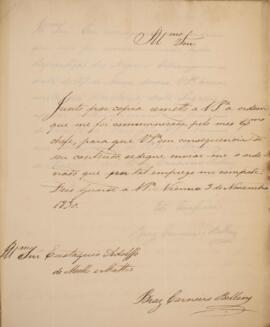 Illmo Snr
Junto por copia remetto a V.Sa a ordem
que me foi communicada, pelo meu Exmo
chefe, para que V.Sa em consequencia de
seu contheudo, se digne enviar-me o orde-
nado que por tal emprego me compete.
Deos Guarde a V.Sa Vienna 3 de Novembro
1830.
Illmo Snr Eustaquio Adolfo
de Mello e Mattos
Braz Carneiro Bellens